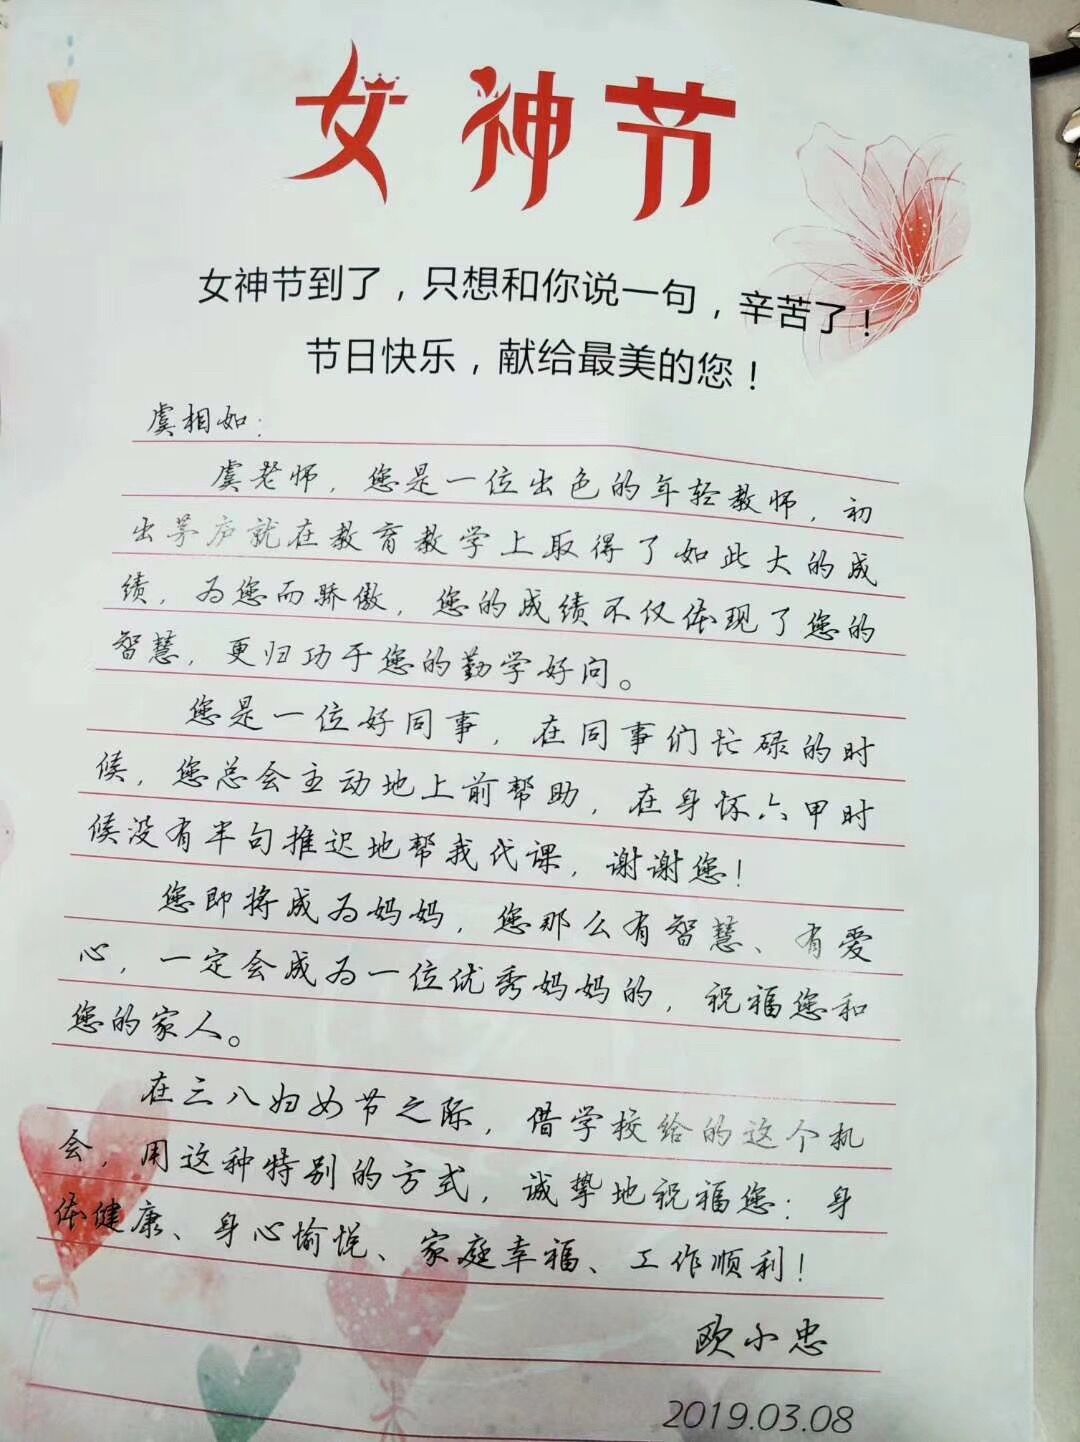 女神节
女神节到了，只想和你说一句，辛苦了！
节日快乐，献给最美的您！
虞相如：
虞老师，您是一位出色的年轻教师，初
出茅庐就在教育教学上取得了如此大的成
绩，为您而骄傲，您的成绩不仅体现了您的
智慧，更归功于您的勤学好问。
您是一位好同事，在同事们忙碌的时
候，您总会主动地上前帮助，在身怀六甲时
候没有半句推迟地帮我代课，谢谢您！
您即将成为妈妈，您那么有智慧、有爱
心，一定会成为一位优秀妈妈的，祝福您和
您的家人。
在三八妇女节之际，借学校给的这个机
会，用这种特别的方式，诚挚地祝福您：身
体健康、身心愉悦、家庭幸福、工作顺利！
欧小忠
2019.03.08